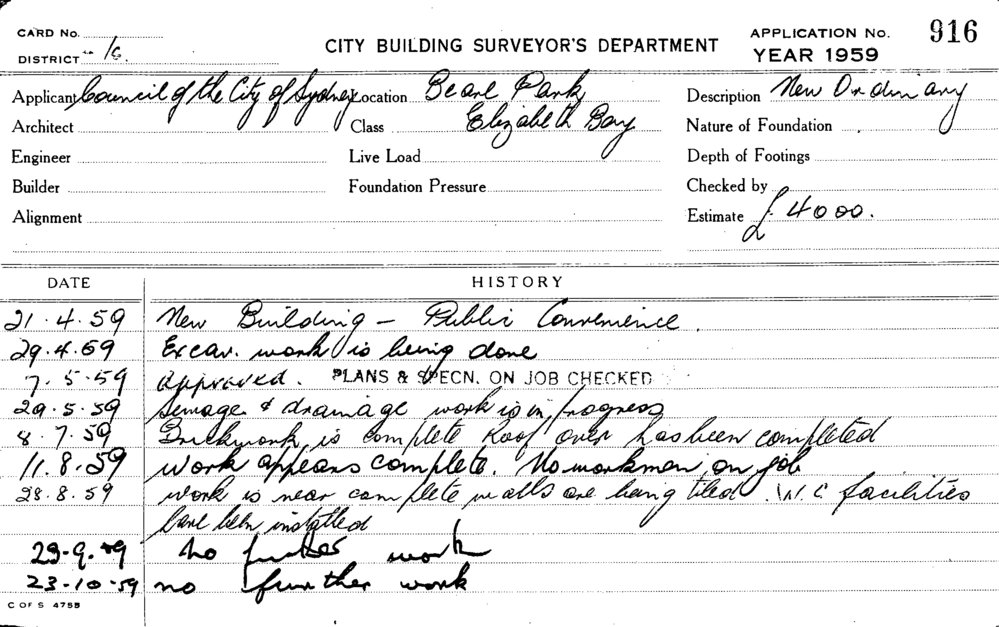 CARD No.
DISTRICT
CITY BUILDING SURVEYOR'S DEPARTMENT
APPLICATION No. 916
YEAR 1959
Applicant Council of the City of Sydney Location Beare Park Description New Ordinary
Architect Class Elizabeth Bay Nature of Foundation
Engineer Live Load Depth of Footings
Builder Foundation Pressure Checked by
Alignment Estimate £ 4000.
DATE HISTORY
21.4.59 New Building – Public Convenience.
29.4.59 Excav. work is being done
7.5.59 Approved. PLANS & SPECN. ON JOB CHECKED
29.5.59 Sewage & drainage work is in progress
8.7.59 Brickwork is complete Roof over has been completed
11.8.59 Work appears complete. No workmen on job
28.8.59 Work is near complete walls are being tiled. W.C facilities
have been installed
23-9-59 no further work
23-10-59 no further work
C OF S 475B